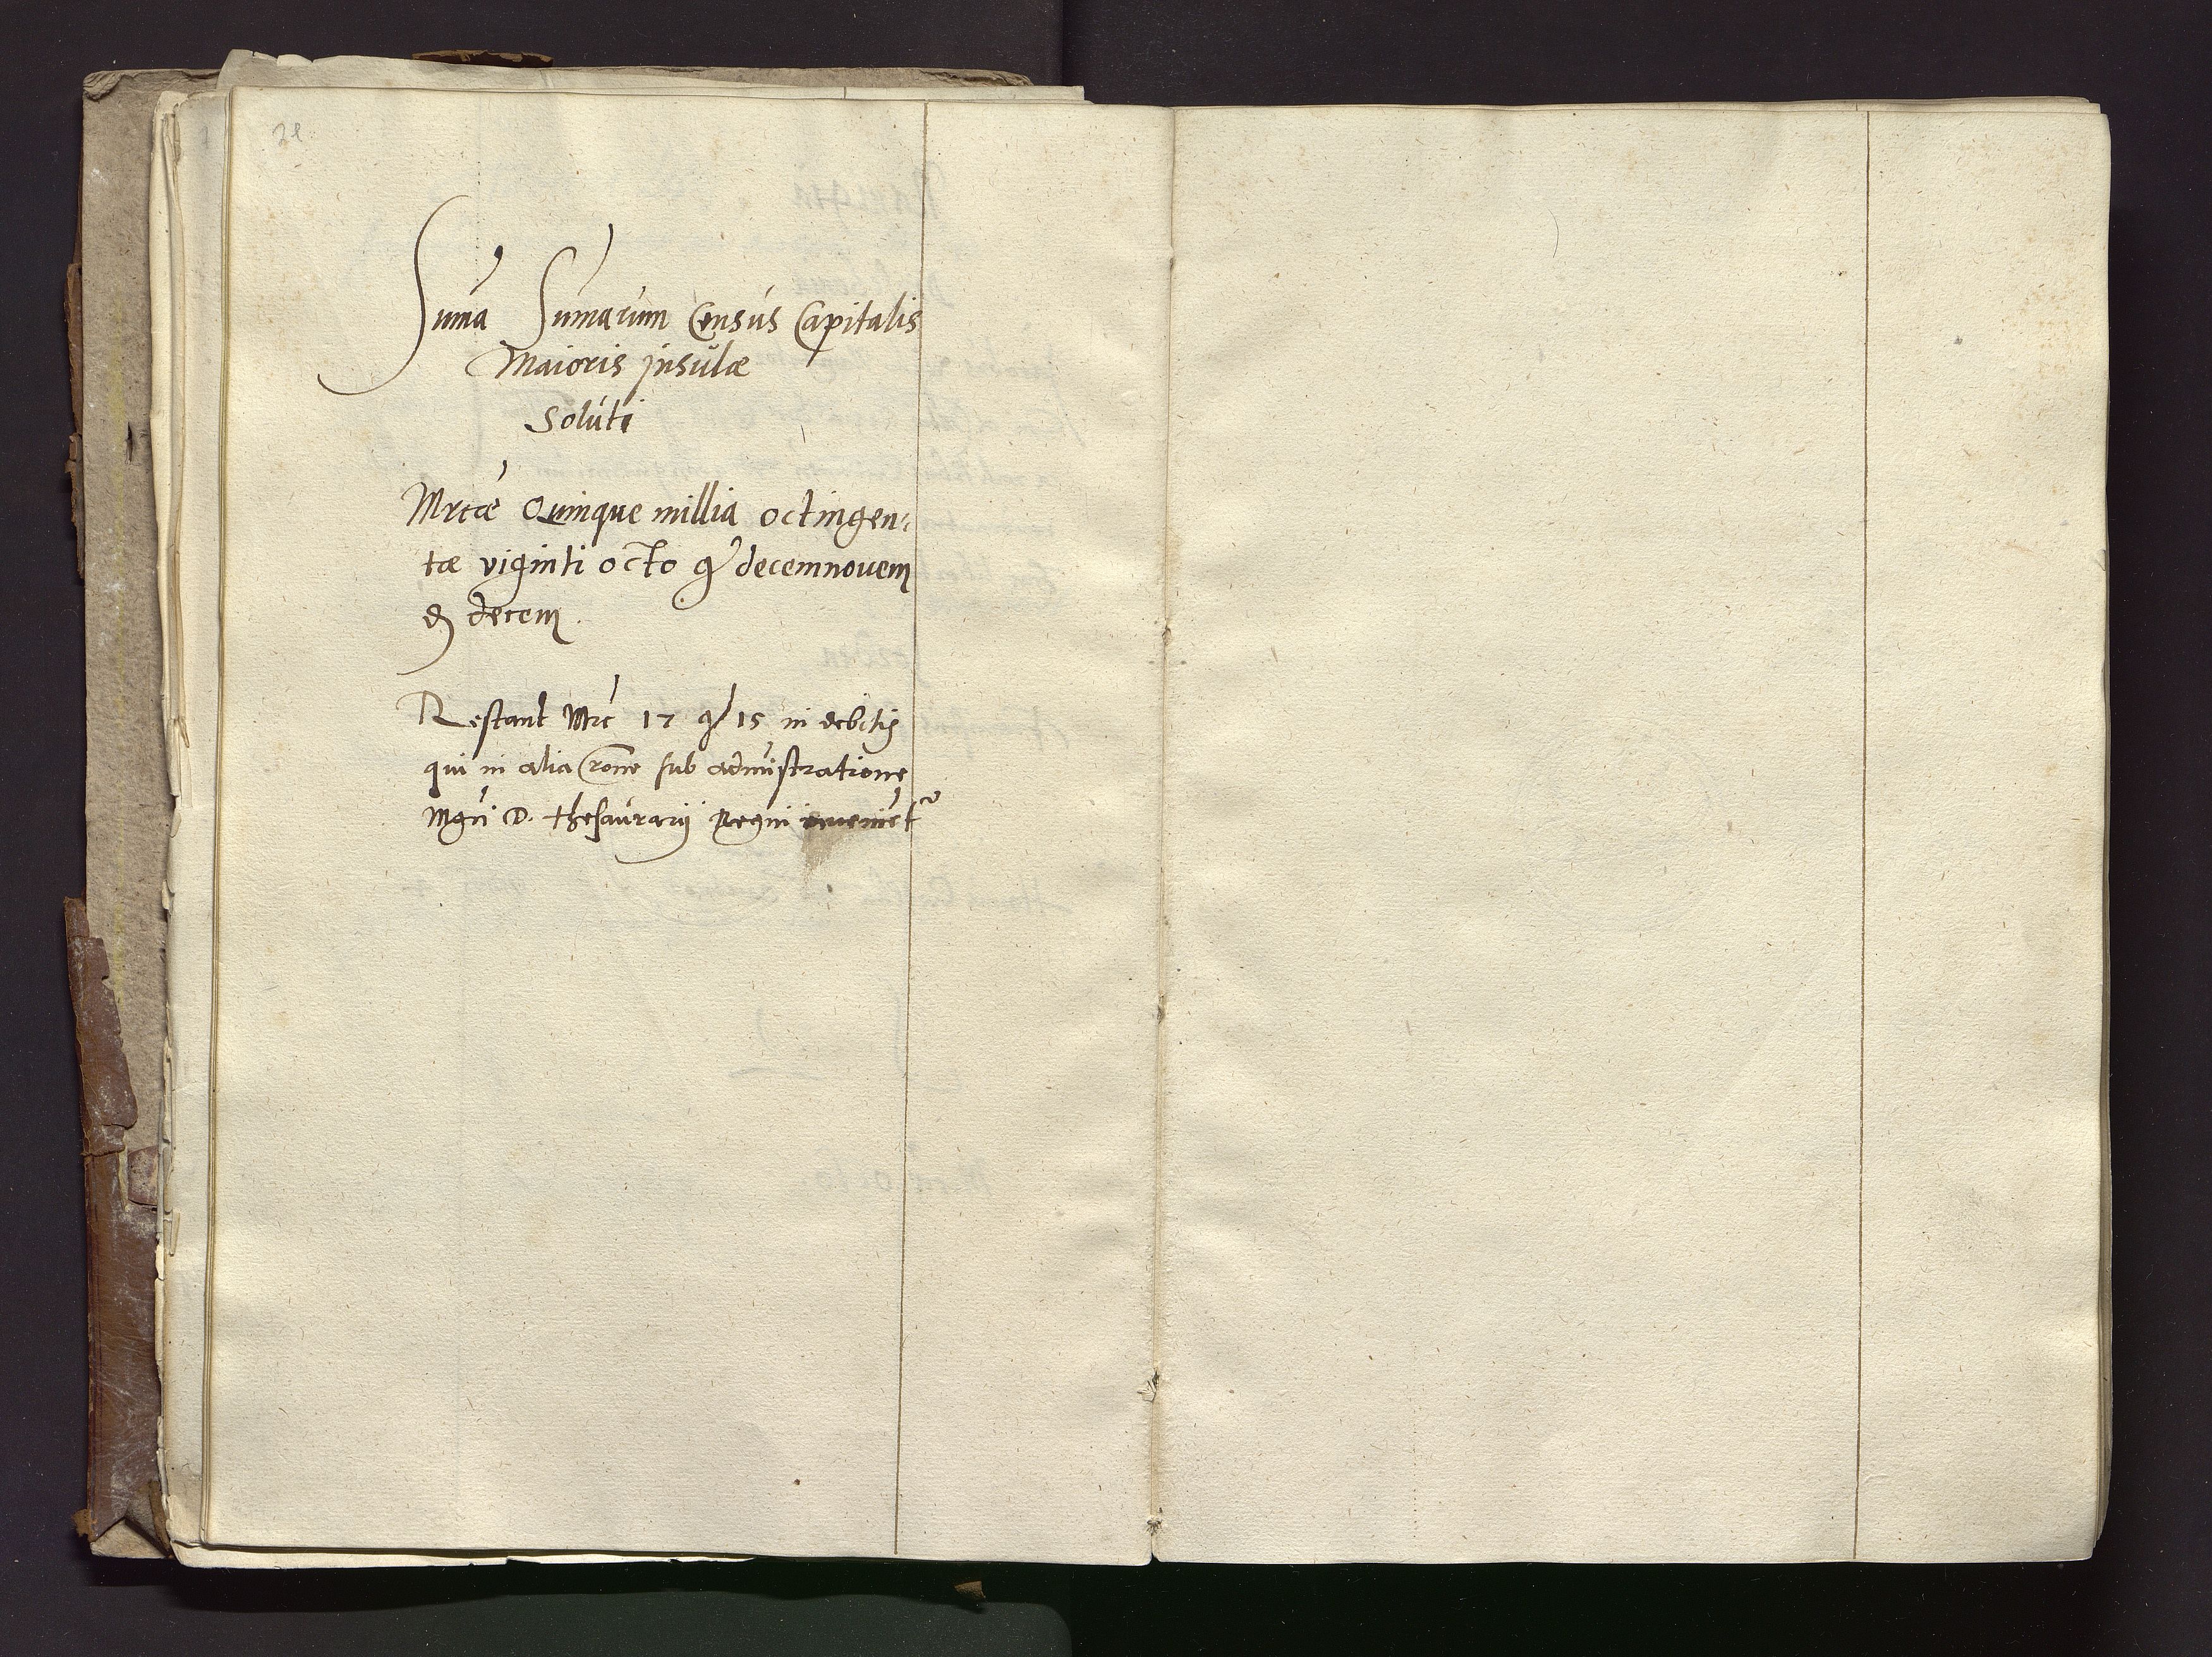 Suma Sumarum Census Capitalis
Maioris Insulæ
Soluti
Mrcæ Quinque millia octingen-
tæ viginti octo gͬ decemnovem
₰ decem.
Restant Mrc 17 gͬ 15 in debitis
qui in alia rõne sub admistratione
Mgci D. thesaurarij Regni invenietͬ